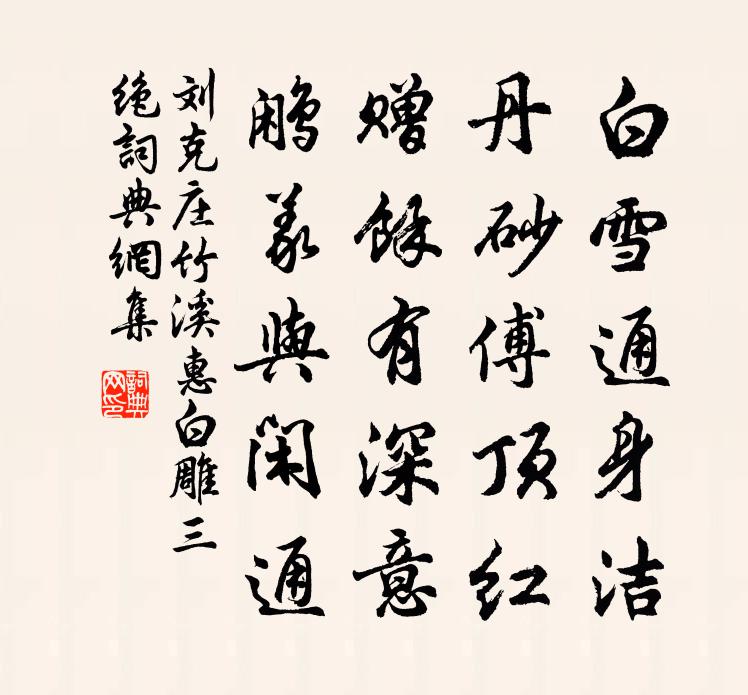 白雪通身洁
丹砂傅顶红
赠餘有深意
鹇義與闲通
刘克庄竹溪惠白雕三
绝詞典網集
詞典网印